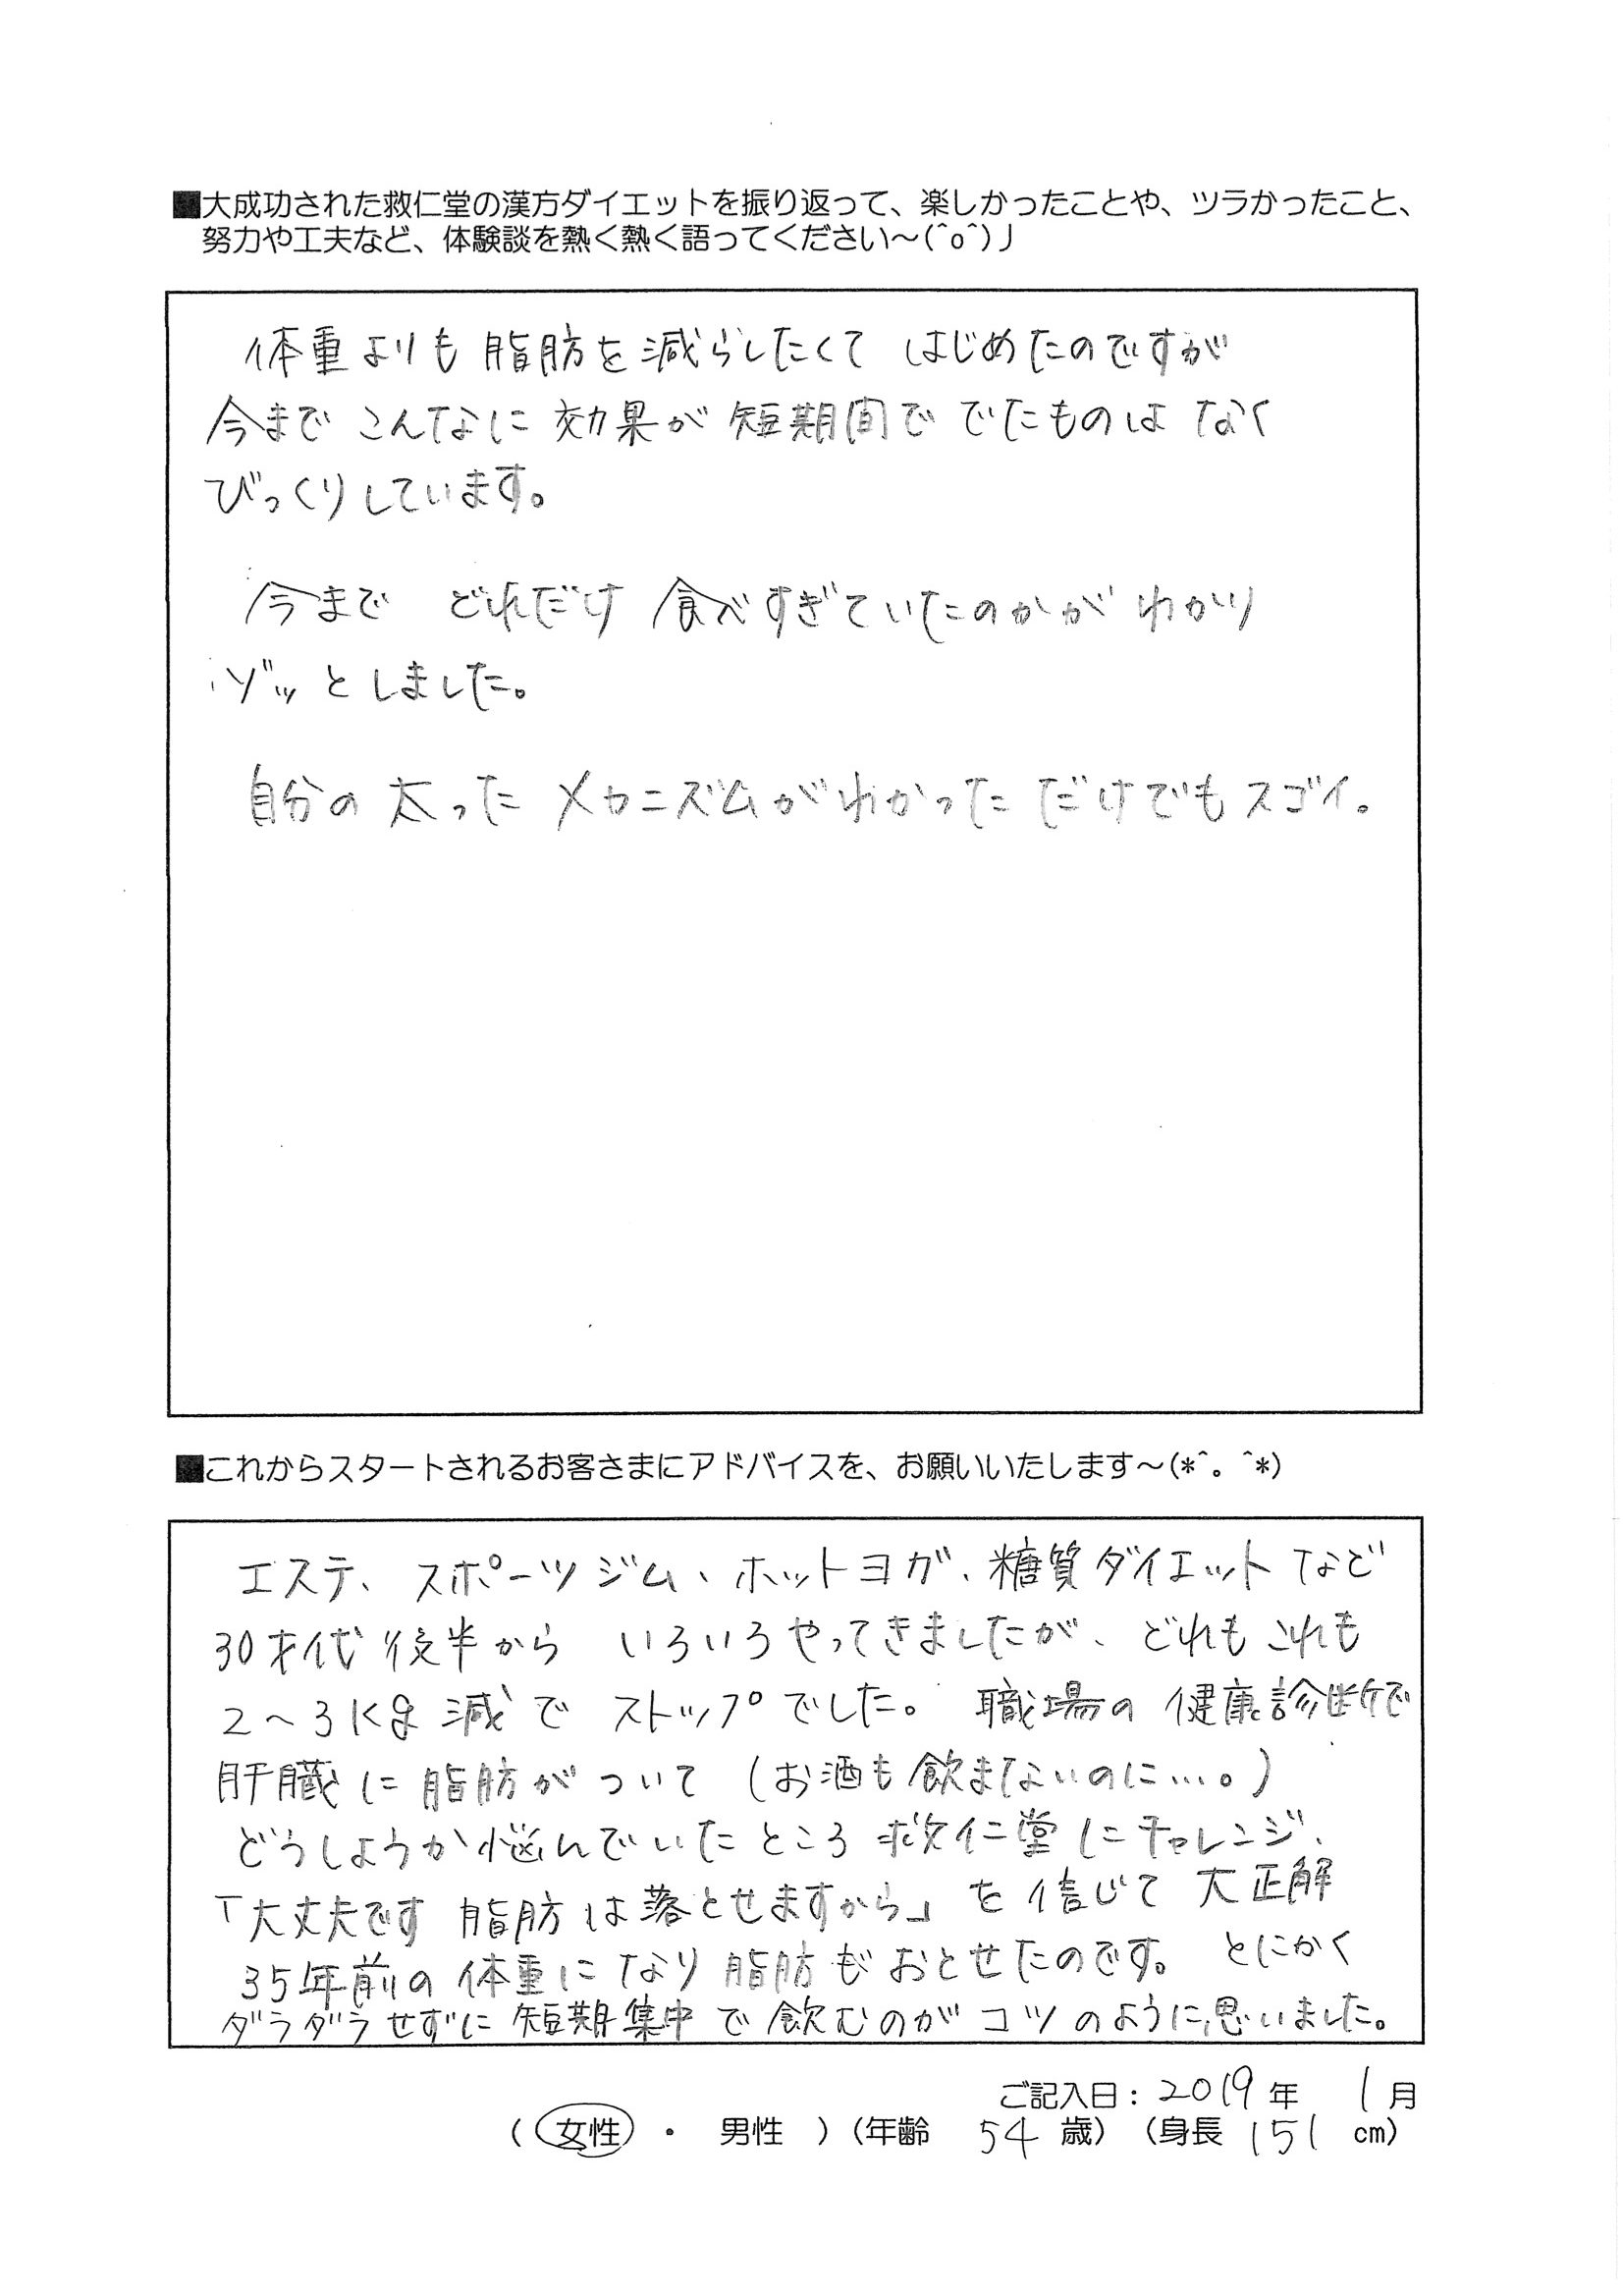 ■大成功された救仁堂の漢方ダイエットを振り返って、楽しかったことや、ツラかったこと、
努力や工夫など、体験談を熱く熱く語ってください～(^o^)丿
体重よりも脂肪を減らしたくて はじめたのですが
今まで こんなに 効果が 短期間で でたものは なく
びっくりしています。
今まで どれだけ 食べすぎていたのかが わかり
ゾッとしました。
自分の 太った メカニズムがわかった だけでもスゴイ。
■これからスタートされるお客さまにアドバイスを、お願いいたします～(*^。^*)
エステ、スポーツジム、ホットヨガ、糖質ダイエット など
30才代後半から いろいろやってきましたが、どれもこれも
2～3Kg減で ストップでした。 職場の 健康診断で
肝臓に 脂肪が ついて (お酒も飲まないのに…。)
どうしようか悩んでいたところ 救仁堂にチャレンジ、
「大丈夫です 脂肪は落とせますから」を信じて 大正解
35年前の体重になり 脂肪もおとせたのです。 とにかく
ダラダラせずに 短期集中で 飲むのが コツのように思いました。
ご記入日：2019年 1月
( 女性 ・ 男性 ) (年齢 54 歳) (身長 151 cm)